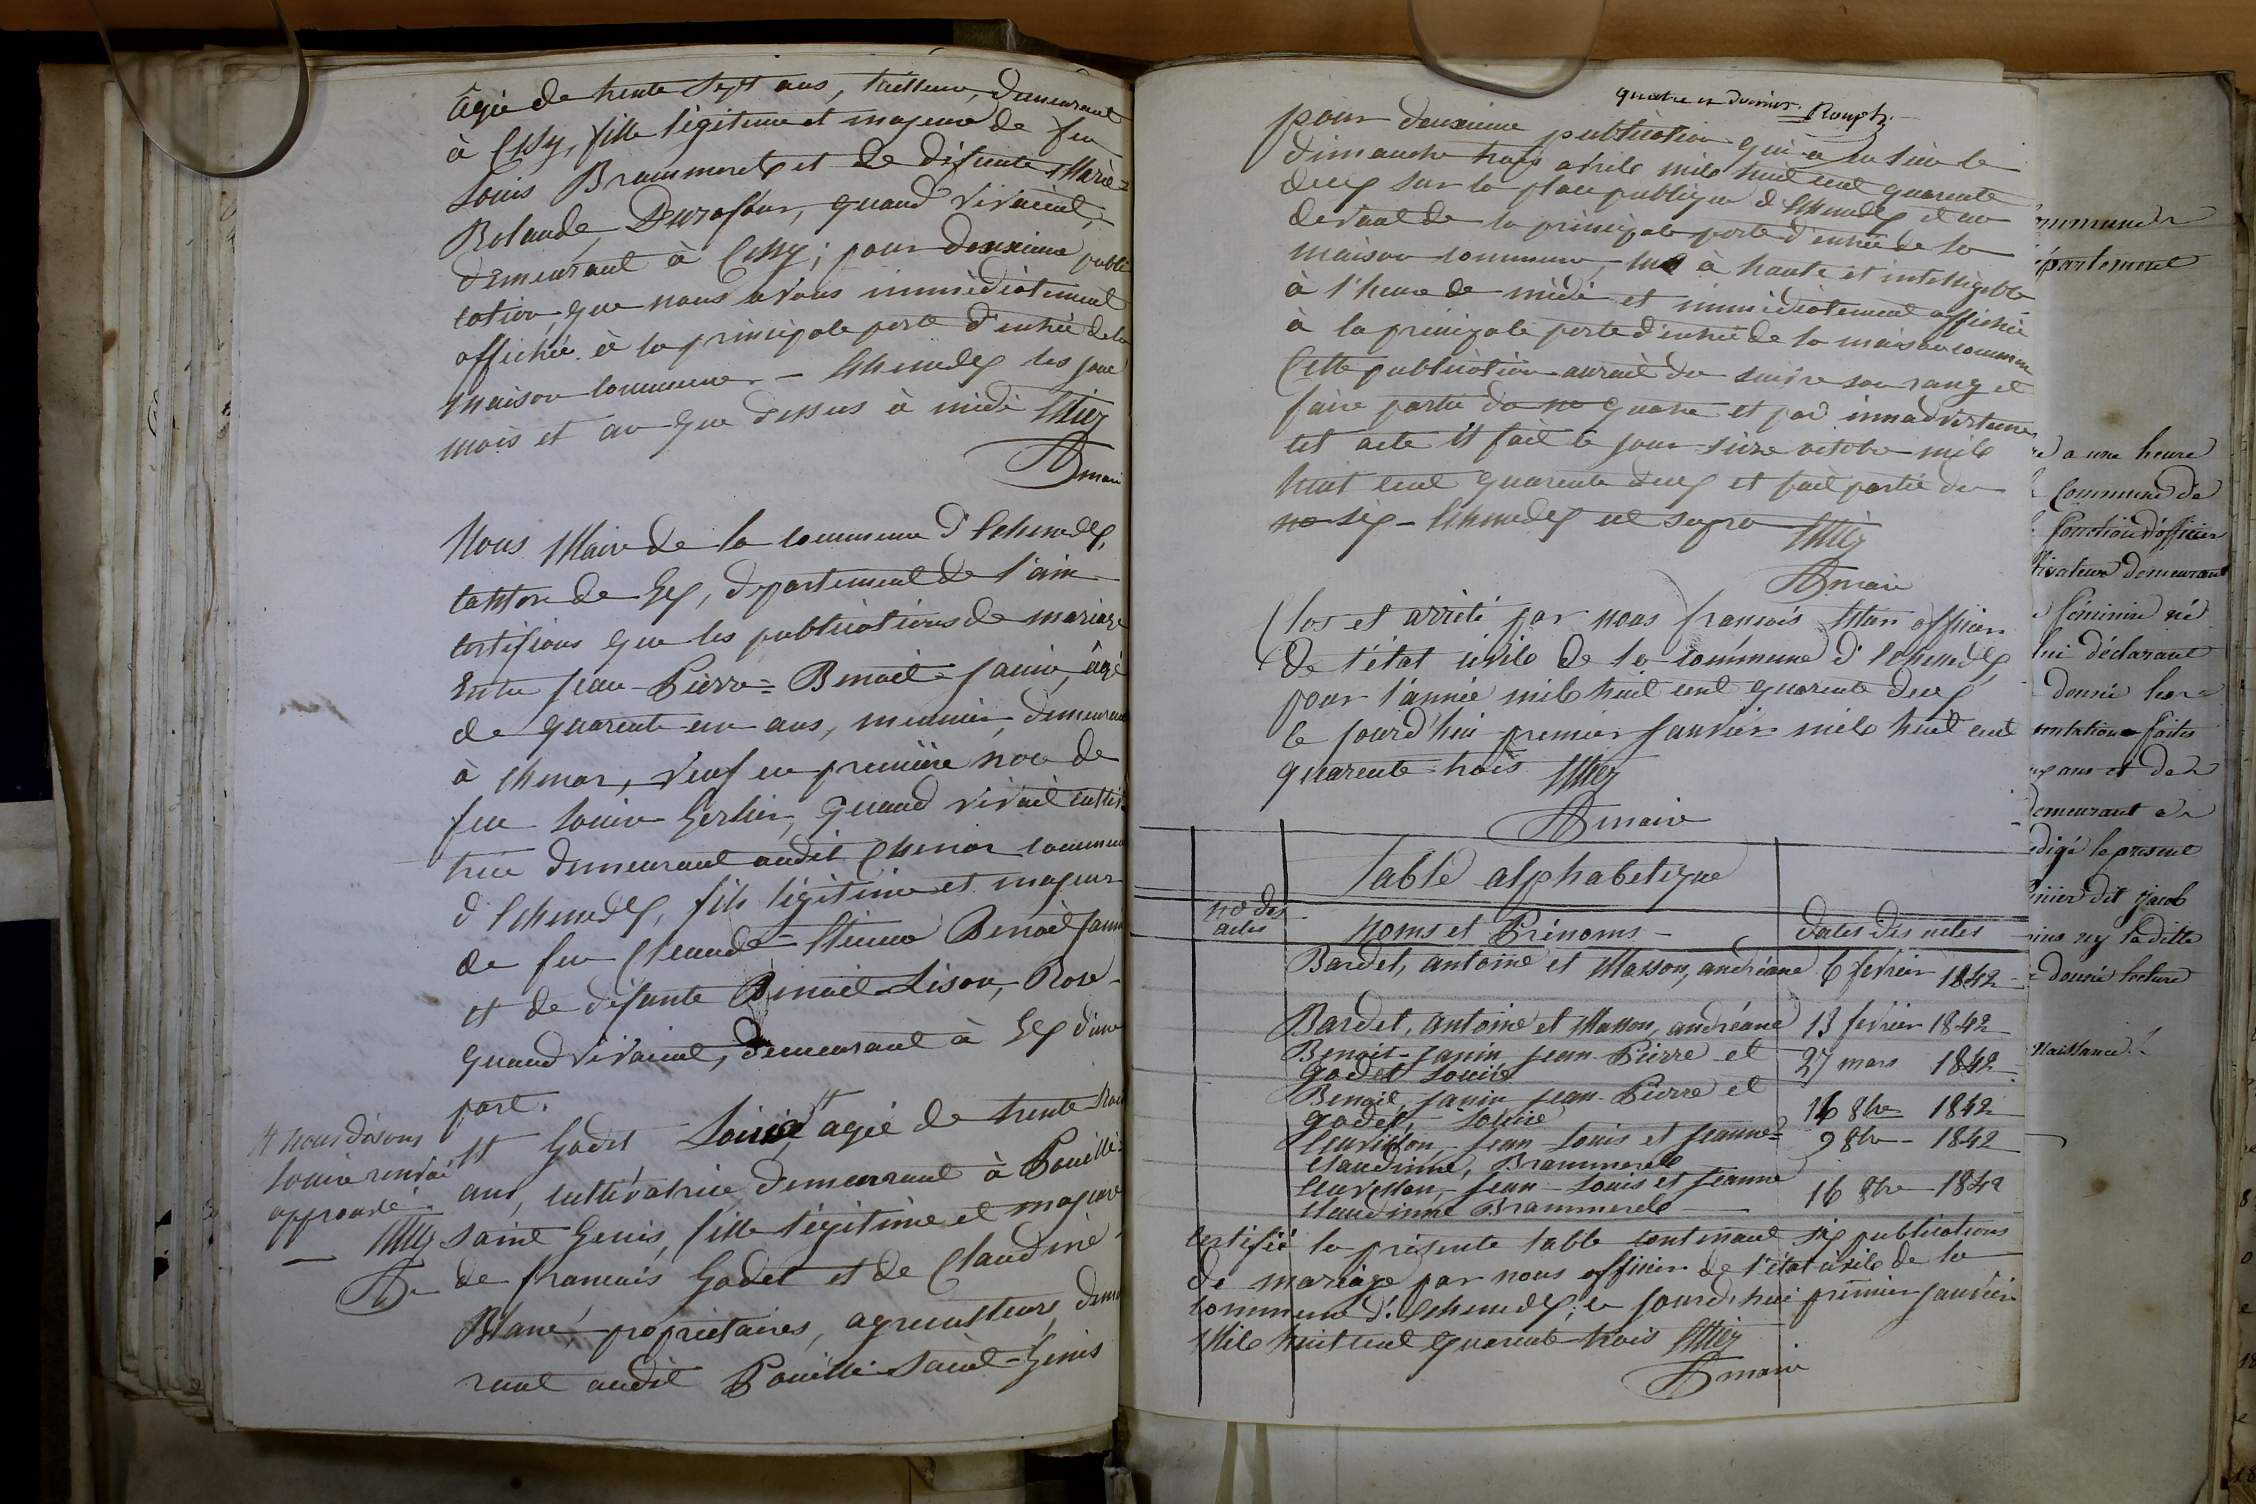 âgée de trente sept ans, tailleuse, demeurant
à Cessy, fille légitime et majeure de feu
Louis Brammerel et de défunte Marie=
Rolande Durafour, quand vivaient,
demeurant à Cessy; pour deuxième publi
cation que nous avons immédiatement
affichée à la principale porte d'entrée de la
maison commune. - Echenevex les jour
mois et an que dessus à midi
maire
Nous Maire de la commune d'Echenevex,
canton de Gex, département de l'ain
certifions que les publications de mariage
Entre Jean-Pierre=Benoit-Janin, âgé
de quarente un ans, meunier, demeurant
à chenaz, veuf en première noce de
feu Louise Gerlier, quand vivait cultiva
trice demeurant audit Chenaz commune
d'Echenevex, fils légitime et majeur
de feu Claude-Etienne Benoit Janin
et de défunte Benoit-Lison, Rose-
quand vivaient, demeurant à Gex d'une
part.
et Godet Louise, agée de trente trois
ans, cultivatrice demeurant à Pouilli-
saint Genis, fille légitime et majeure
de francois Godet et de Claudine
Blanc, propriétaires, agriculteurs, demeu
rant audit Pouilli-Saint-Genis
nous disons
Louise renvoi
approuvé.
quatre et dernier. Rouph
pour deuxieme publication qui a eu lieu le
dimanche trois avril mil huit cent quarente
deux sur la place publique d'Echenevex et au
devant de la principale porte d'entrée de la
maison commune, lue à haute et intelligible
à l'heure de midi et immédiatement affichée
à la principale porte d'entrée de la maison commun
Cette publication aurait du suivre son rang et
faire partie du no quatre et par innadvertence
cet acte est fait le jour seize octobre mil
huit cent quarente deux et fait partie du
no six - Echenevex ut supra
maire
Clos et arrêté par nous francois officier
de l'état civil de la commune d'Echenevex
pour l'année mil huit cent quarente deux
le jourd'hui premier Janvier mil huit cent
quarente trois
maire
Table alphabetique
no des actes
noms et Prénoms -
dates des actes
Bardet, antoine et Masson, andréane 6 fevrier 1842
Bardet, antoine et Masson, andréane 13 fevrier 1842
Benoit-Janin Jean-Pierre et
Godet Louise 27 mars 1842
Benoit, Janin Jean-Pierre et
Godet, Louise 16 8bre 1842
Jean-Louis et Jeanne= 9 8bre - 1842
Claudinne, Brammerel
Jean-Louis et Jeanne
Claudinne Brammerel 16 8bre 1842
Certifié la présente table contenant six publications
de mariage par nous officier de l'état civil de la
commune d'Echenevex, le jourd'hui premier Janvier
Mil huit cent quarente trois
maire
ommune
épartement
a une heure
Commune de
fonction d'officier
tivateur demeurant
féminin né
lui déclarant
donné les
sentation faites
ans et de
demeurant a
edigé le présent
dit Jacob
ny ladite
donné lecture
Naissance